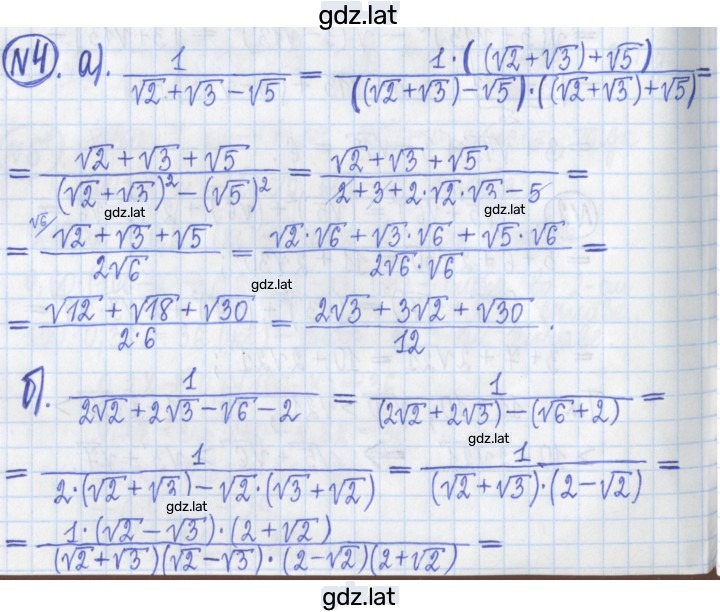 gdz.lat
№4. а). 1/(√2+√3−√5) = 1·((√2+√3)+√5)/(((√2+√3)−√5)·((√2+√3)+√5)) =
= (√2+√3+√5)/((√2+√3)²−(√5)²) = (√2+√3+√5)/(2+3+2·√2·√3−5) =
gdz.lat gdz.lat
= √6/ (√2+√3+√5)/(2√6) = (√2·√6+√3·√6+√5·√6)/(2√6·√6) =
gdz.lat
= (√12+√18+√30)/(2·6) = (2√3+3√2+√30)/12.
б). 1/(2√2+2√3−√6−2) = 1/((2√2+2√3)−(√6+2)) =
gdz.lat
= 1/(2·(√2+√3)−√2·(√3+√2)) = 1/((√2+√3)·(2−√2)) =
gdz.lat
= 1·(√2−√3)·(2+√2)/((√2+√3)(√2−√3)·(2−√2)(2+√2)) =
gdz.lat